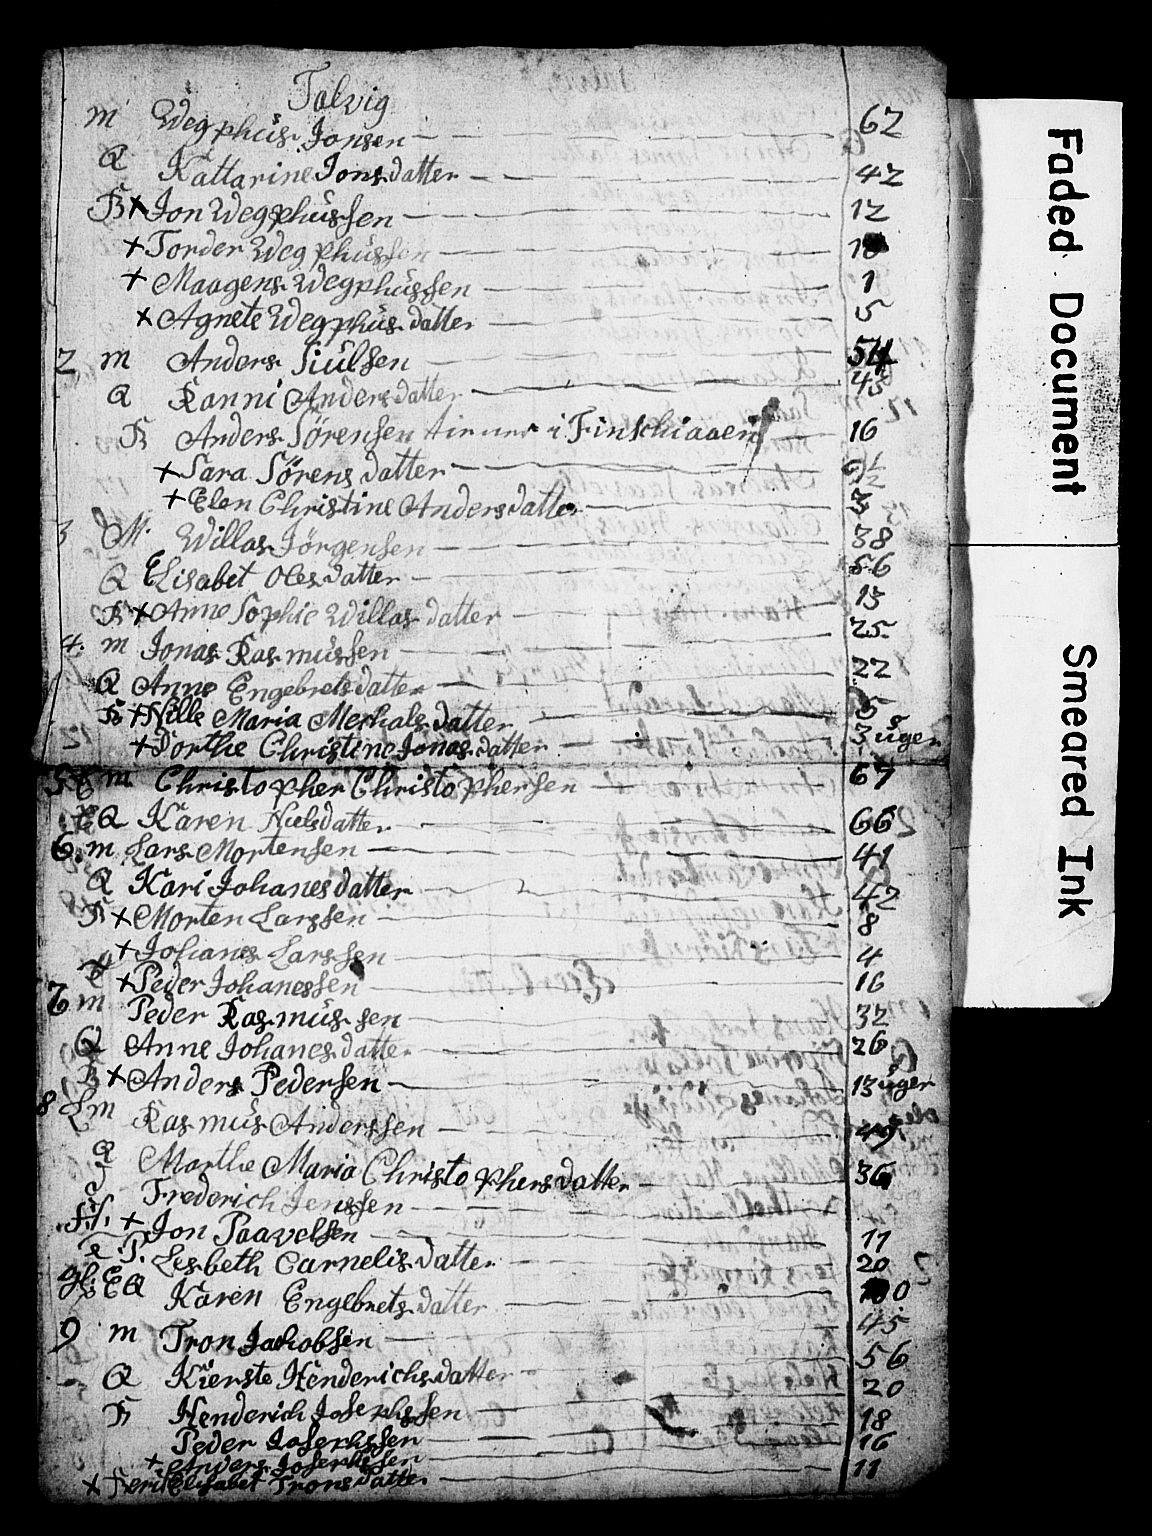 Talvig
m Wegphüs Jonsen 62
Q Kattarine Jons datter 42
B x Jon Wegphüssen 12
x Torder Wegphüssen
x Maagens Wegphüssen 1
x Agnete Wegphüs datter 5
2 m Anders Siulsen 54
Q Ranni Anders datter 43
B Anders Sørensen i Finschiaaen 16
x Sara Sørens datter 9½
x Elen Christine Anders datter 3
3 M. Willas Jørgensen 38
Q Elisabet Oles datter 56
B x Anne Sophie Willas datter 13
4. m Jonas Rasmüssen 25
Q Anne Engebrets datter 22
B x Nille Maria Merkals datter 5
x Dorthe Christine Jonas datter 3 üger
5 E m Christopher Christophersen 67
E Q Karen Niels datter 66
6. m Lars Mortensen 41
Q Kari Johanes datter 42
B x Morten Larssen 8
x Johanes Larssen 4
x Peder Johanessen 16
7 m Peder Rasmüssen 32
Q Anne Johanes datter 26
B x Anders Pedersen 13 üger
8 m Rasmüs Anderssen 49
Q Marthe Maria Christophers datter 36
Frederich Jenssen
x Jon Paavelsen 11
Lesbeth Carnelis datter 20
E Q Karen Engebrets datter
9 m Tron Jachobsen 45
Q Kierste Henderichs datter 56
B Henderich Josephssen 20
Peder Josephssen 18
x Anders Josephssen 16
x Berit Elisabet Trons datter 11
Faded Document
Smeared Ink